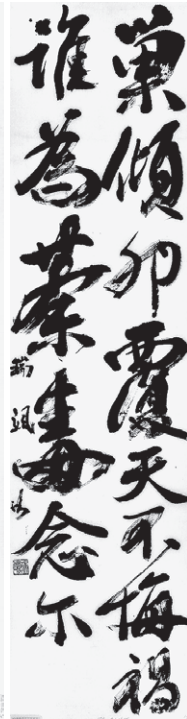 巢傾卵覆天不悔禍
誰為荼毒念尔